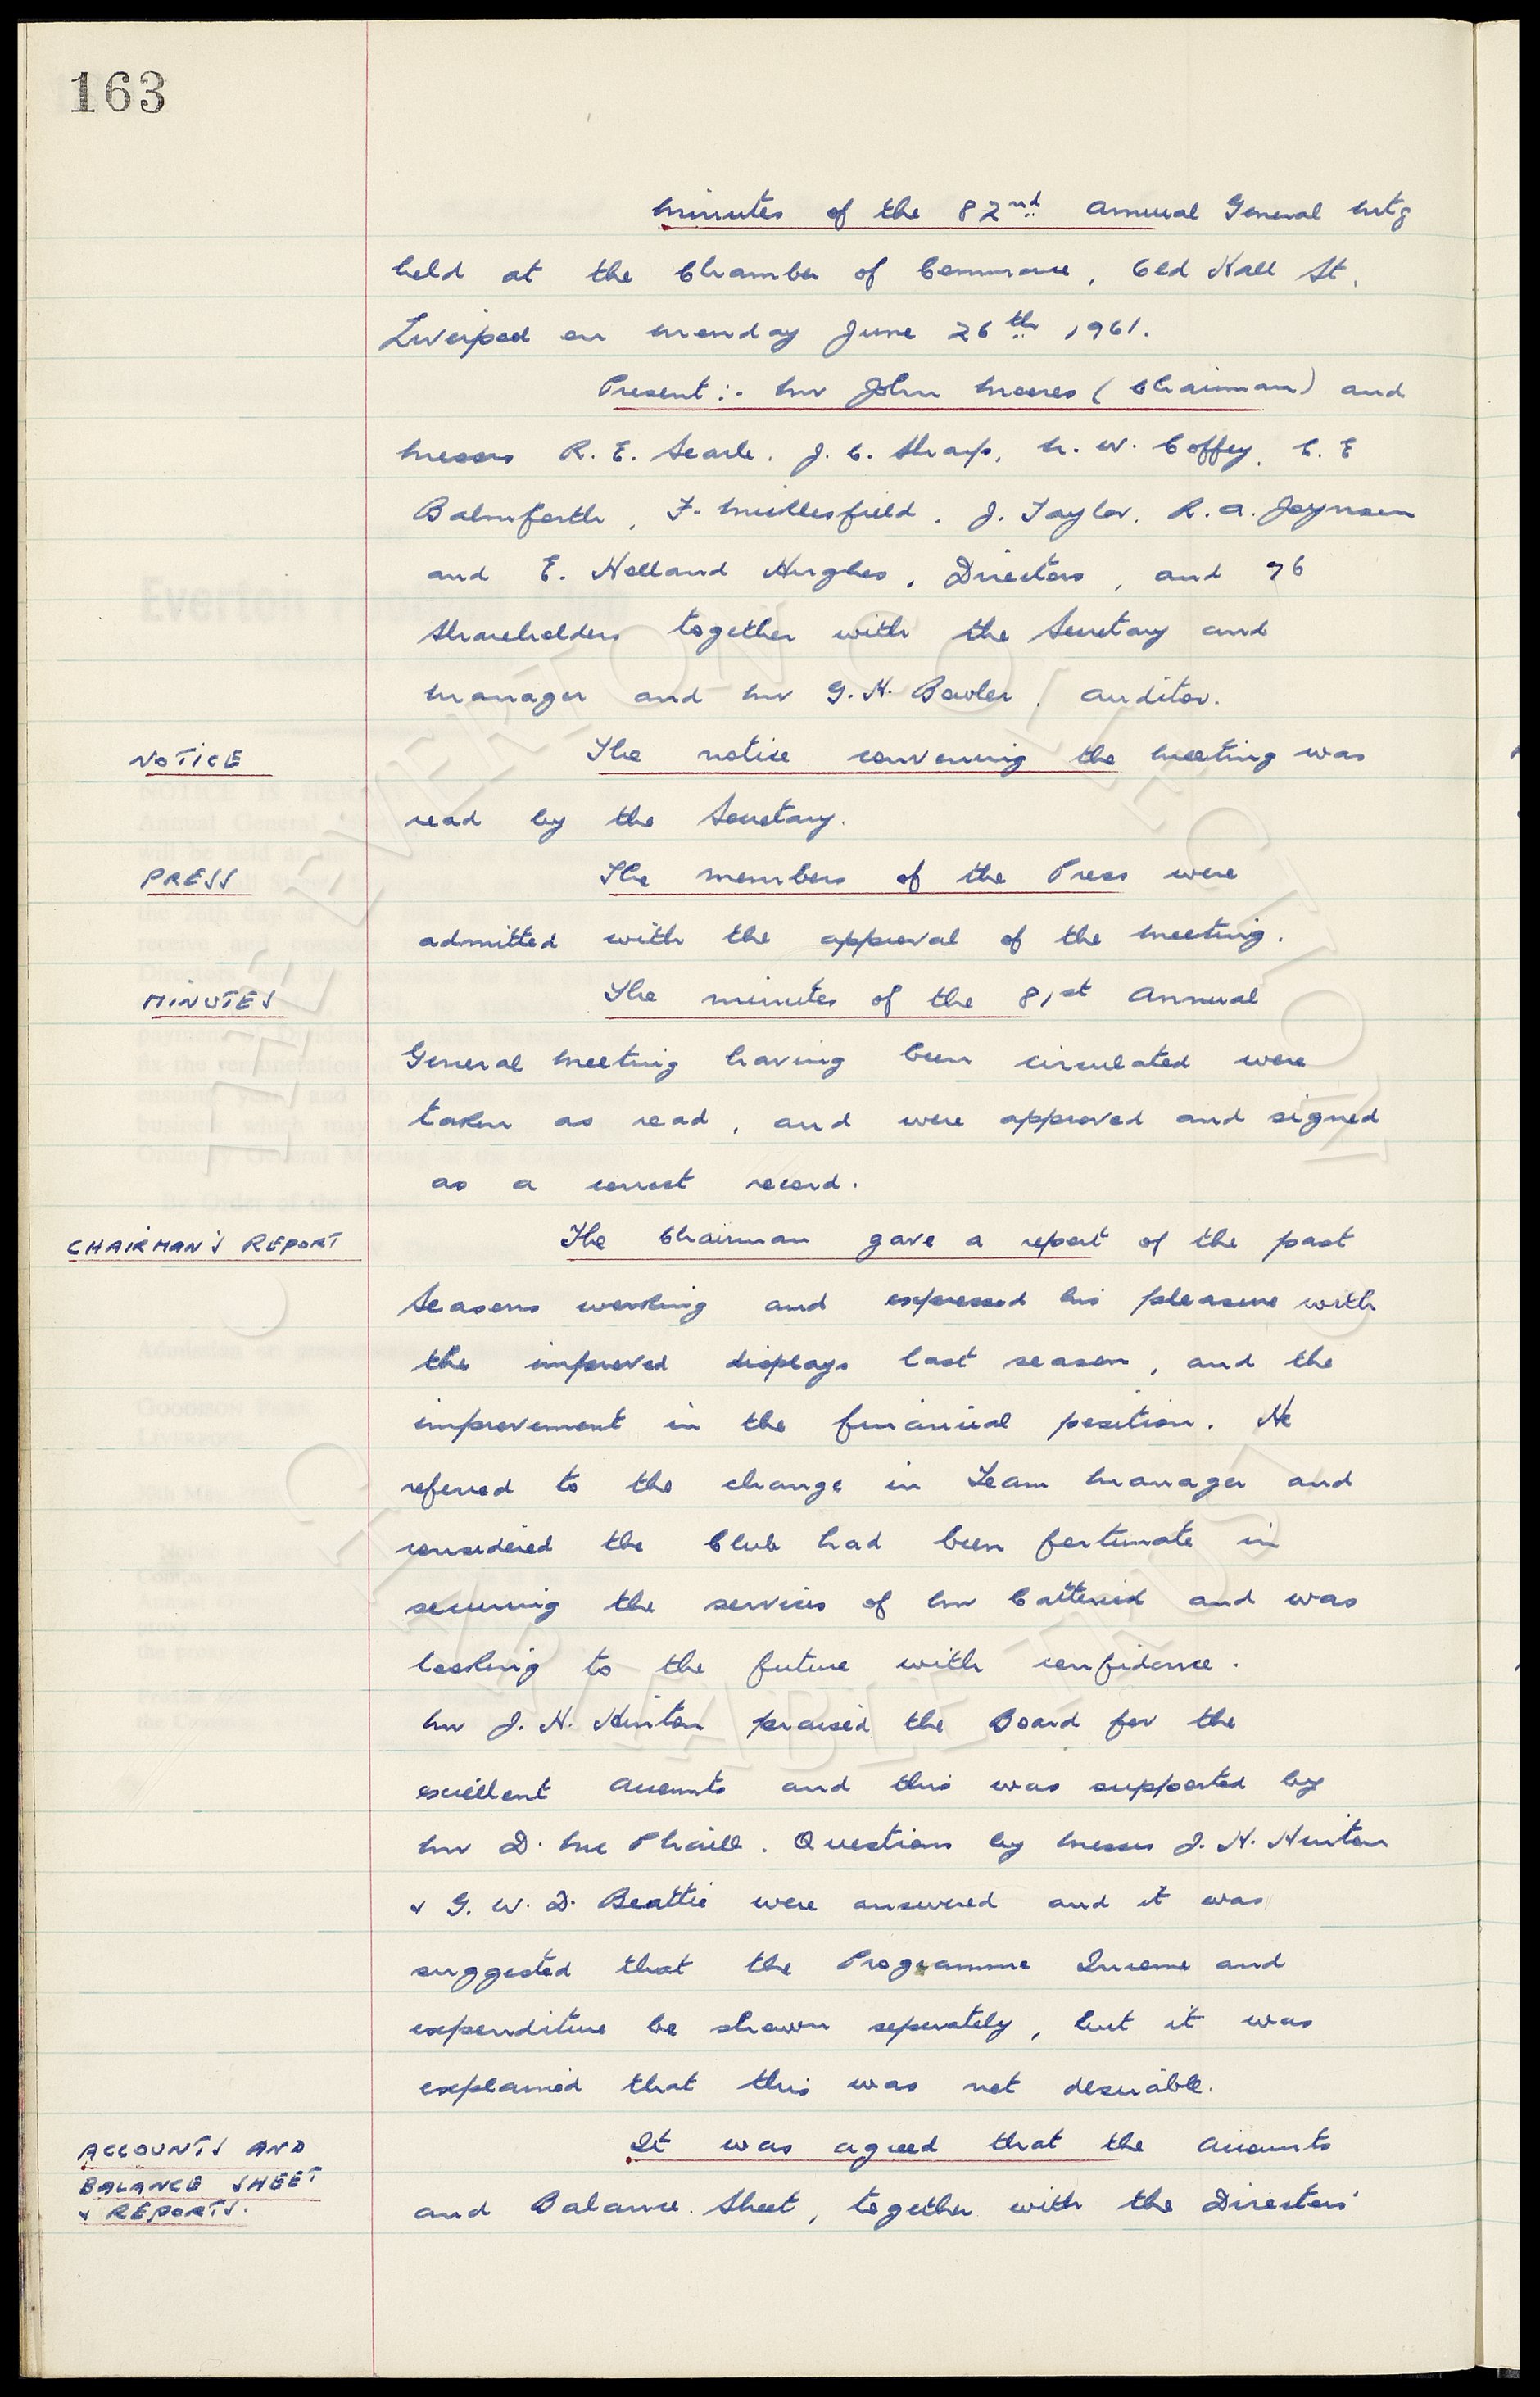 163
Minutes of the 82nd Annual General Mtg
held at the Chamber of Commerce, Old Hall St,
Liverpool on Monday June 26th 1961.
Present:- Mr John Moores (Chairman) and
Messrs R. E. Searle, J. C. Sharp, N. W. Coffey, C. E
Balmforth, F. Micklesfield, J. Taylor, R. A. Joynson
and E. Holland Hughes, Directors, and 76
Shareholders together with the Secretary and
Manager and Mr G. H. Bowler, Auditor.
NOTICE
The notice convening the meeting was
read by the Secretary.
PRESS
The members of the Press were
admitted with the approval of the meeting.
MINUTES
The minutes of the 81st Annual
General Meeting having been circulated were
taken as read, and were approved and signed
as a correct record.
CHAIRMAN'S REPORT
The Chairman gave a report of the past
Seasons working and expressed his pleasure with
the improved displays last season, and the
improvement in the financial position. He
referred to the change in Team Manager and
considered the Club had been fortunate in
securing the services of Mr Catterick and was
looking to the future with confidence.
Mr J. H. Hinton praised the Board for the
excellent Accounts and this was supported by
Mr D. Mc Phaill. Questions by Messrs J. H. Hinton
& G. W. D. Beattie were answered and it was
suggested that the Programme Income and
expenditure be shown seperately, but it was
explained that this was not desirable.
ACCOUNTS AND
BALANCE SHEET
& REPORTS.
It was agreed that the Accounts
and Balance Sheet, together with the Directors'
THE EVERTON COLLECTION
CHARITABLE TRUST